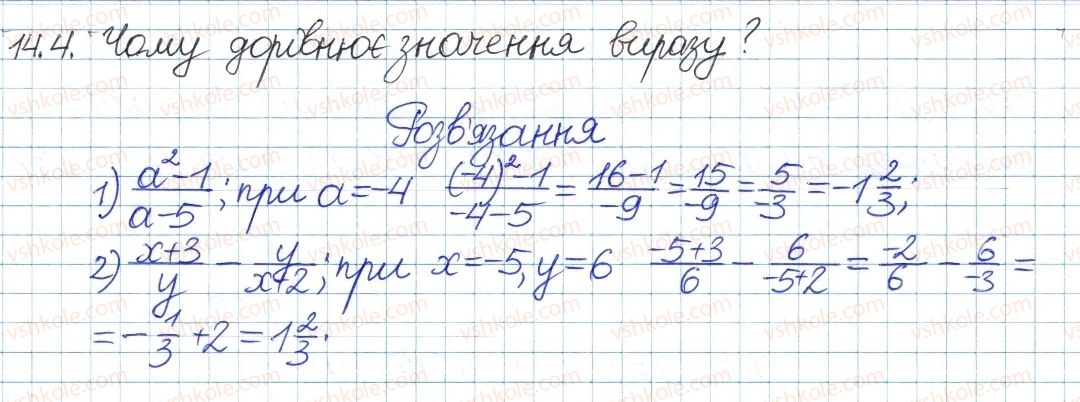 14.4. Чому дорівнює значення виразу?
Розв'язання
1) \frac{a^2-1}{a-5}; при a=-4 \frac{(-4)^2-1}{-4-5} = \frac{16-1}{-9} = \frac{15}{-9} = \frac{5}{-3} = -1\frac{2}{3};
2) \frac{x+3}{y} - \frac{y}{x+2}; при x=-5, y=6 \frac{-5+3}{6} - \frac{6}{-5+2} = \frac{-2}{6} - \frac{6}{-3} =
= -\frac{1}{3} + 2 = 1\frac{2}{3}.